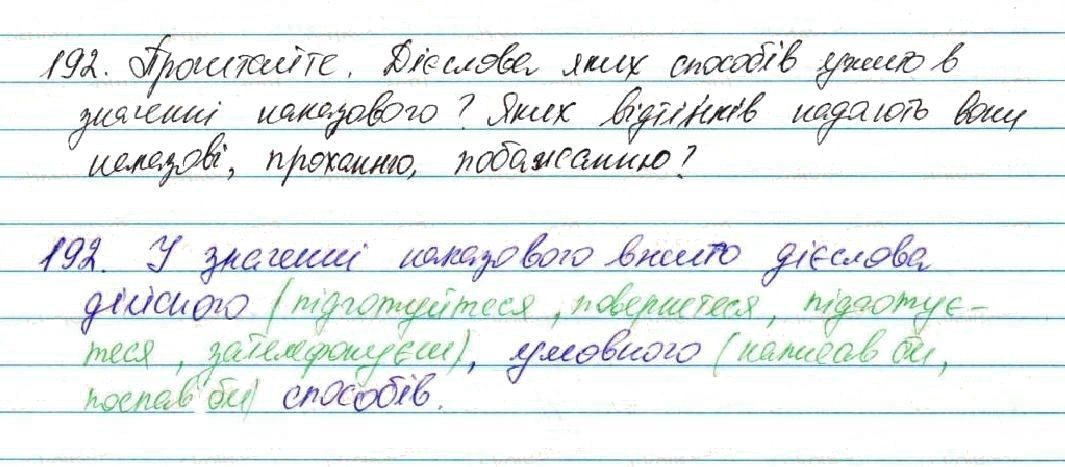 192. Прочитайте. Дієслова яких способів ужито в
значенні наказового? Яких відтінків надають вони
наказові, проханню, побажанню?
192. У значенні наказового вжито дієслова
дійсного (підготуйтеся, повернетеся, підготує-
теся, зателефонуєш), умовного (написав би,
поспав би) способів.